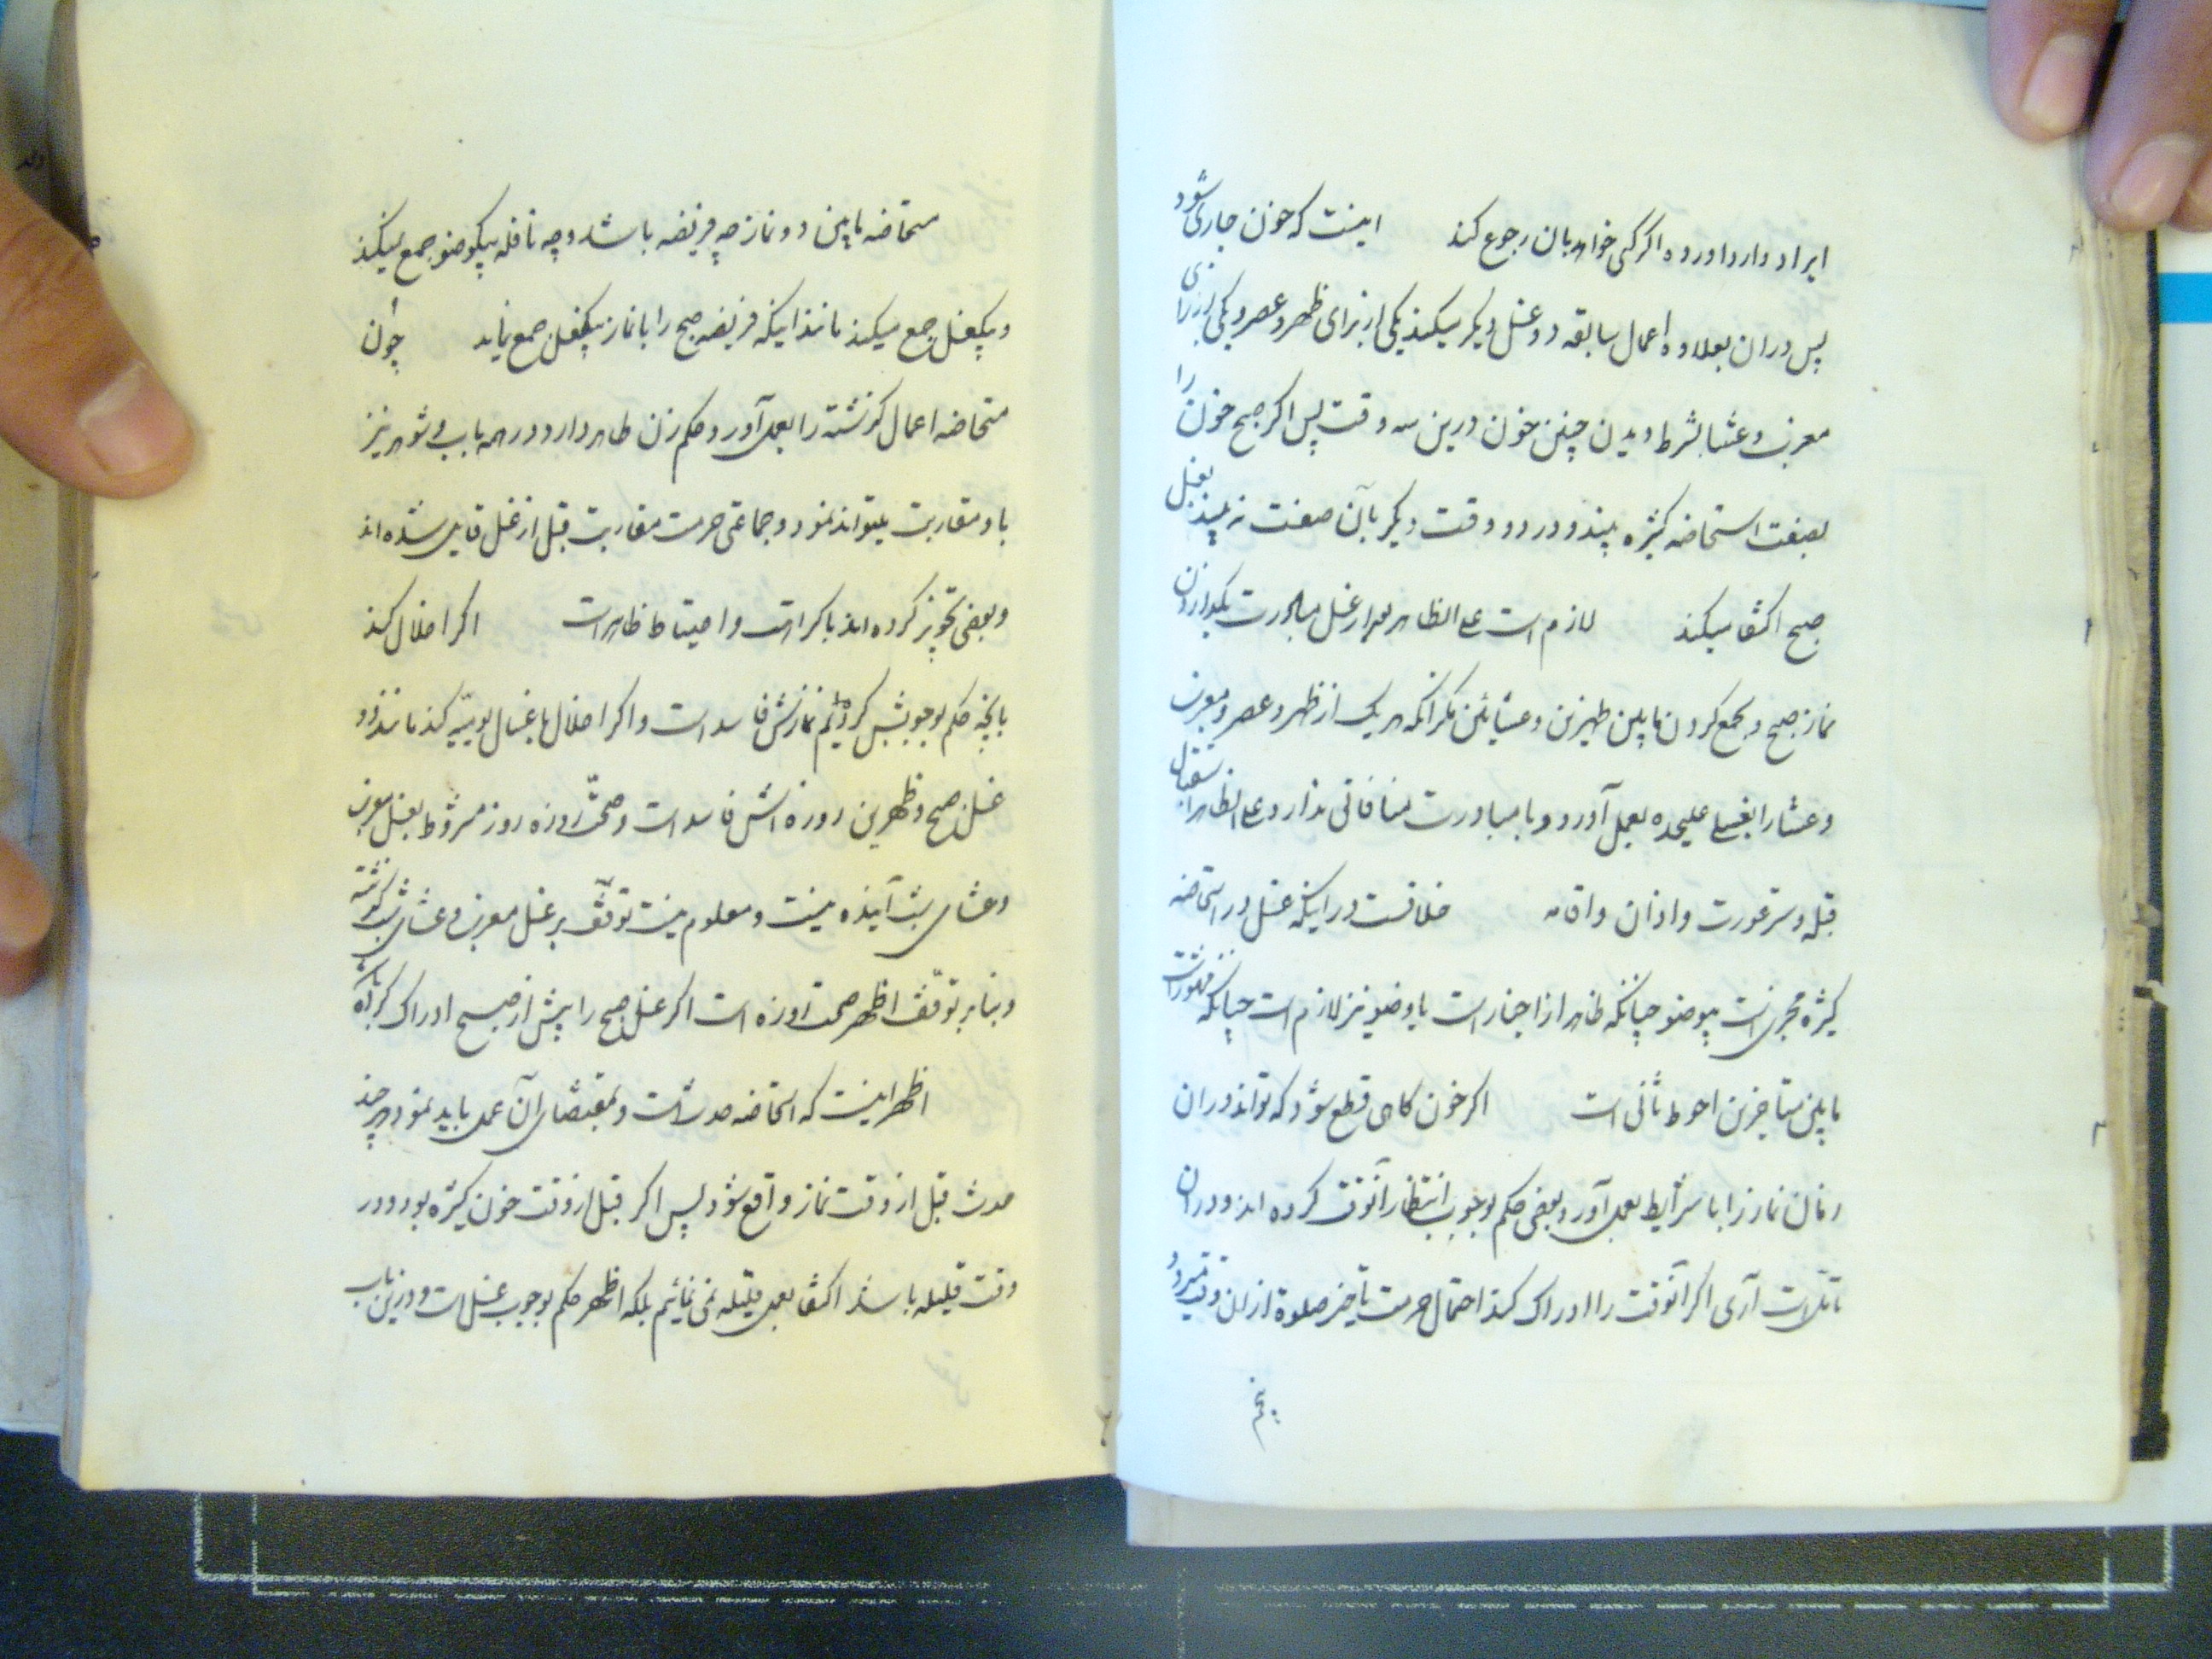 ایراد دارد اورده اگر کسی خواهد بان رجوع کند اینست که خون جاری شود
پس در ان بعلاوه اعمال سابقه دو غسل دیگر میکند یکی از برای ظهر و عصر و یکی از برای
مغرب و عشا بشرط دیدن چنین خون درین سه وقت پس اگر صبح خون را
بصفت استحاضه کثیره بیند و در دو وقت دیگر بآن صفت نه بیند بغسل
صبح اکتفا میکند لازم است علی الظاهر بعد از غسل مبادرت بکردن
نماز صبح و بجمع کردن مابین ظهرین و عشائین مگر آنکه هر یک از ظهر و عصر و مغرب
و عشا را بغسلی علیحده بعمل آورد و با مبادرت منافاتی ندارد علی الظاهر استقبال
قبله و ستر عورت و اذان و اقامه خلافست در اینکه غسل در استحاضه
کثیره مجزی است بیوضو چنانکه ظاهر از اخبار است یا وضو نیز لازم است چنانکه مشهور است
مابین متاخرین احوط ثانی است اگر خون گاهی قطع شود که تواند در ان
زمان نماز را با شرایط بعمل آورد بعضی حکم بوجوب انتظار آنوقت کرده اند و در ان
تامل است آری اگر آنوقت را ادراک کند احتمال حرمت تأخیر صلوة از ان وقت میرود
پنجم
مستحاضه مابین دو نماز چه فریضه باشد و چه نافله بیکوضو جمع نمیکند
و بیکغسل جمع میکند مانند اینکه فریضه صبح را با نماز بیکغسل جمع نماید چون
مستحاضه اعمال گذشته را بعمل آورد حکم زن طاهر دارد در همه باب و شوهر نیز
با او مقاربت میتواند نمود و جماعتی حرمت مقاربت قبل از غسل قایل شده اند
و بعضی تجویز کرده اند با کراهت و احتیاط ظاهر است اگر اخلال کند
بانچه حکم بوجوبش کردیم نمازش فاسد است و اگر اخلال باغسال یومیه کند مانند دو
غسل صبح و ظهرین روزه اش فاسد است و صحت روزه روز مشروط بغسل مغرب
و عشای شب آینده نیست و معلوم نیست توقف بر غسل مغرب و عشای شب گذشته
و بنا بر توقف اظهر صحت روزه است اگر غسل صبح را پیش از صبح ادراک کرده
اظهر اینست که استحاضه حدث است و بمقتضای آن عمل باید نمود هر چند
حدث قبل از وقت نماز واقع شود پس اگر قبل از وقت خون کثیره بود و در
وقت قلیله باشد اکتفا بعمل قلیله نمی نمائیم بلکه اظهر حکم بوجوب غسل است و درین باب